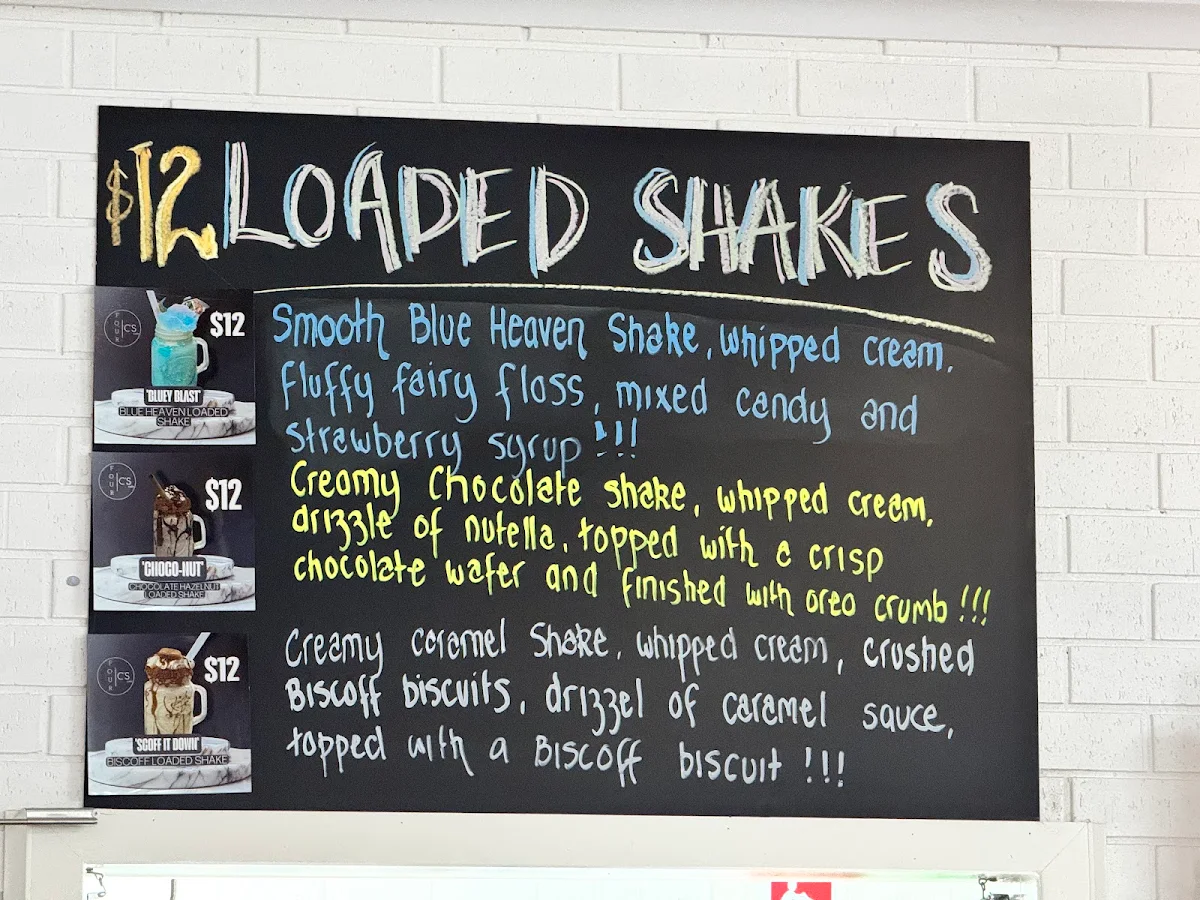 $12 LOADED SHAKES
FOUR C'S
$12
'BLUEY BLAST'
BLUE HEAVEN LOADED
SHAKE
Smooth Blue Heaven Shake, whipped cream,
fluffy fairy floss, mixed candy and
strawberry syrup !!!
FOUR C'S
$12
'CHOCO-NUT'
CHOCOLATE HAZELNUT
LOADED SHAKE
Creamy Chocolate shake, whipped cream,
drizzle of nutella, topped with a crisp
chocolate wafer and finished with oreo crumb !!!
FOUR C'S
$12
'SCOFF IT DOWN'
BISCOFF LOADED SHAKE
Creamy caramel Shake, whipped cream, crushed
Biscoff biscuits, drizzel of caramel sauce,
topped with a Biscoff biscuit !!!